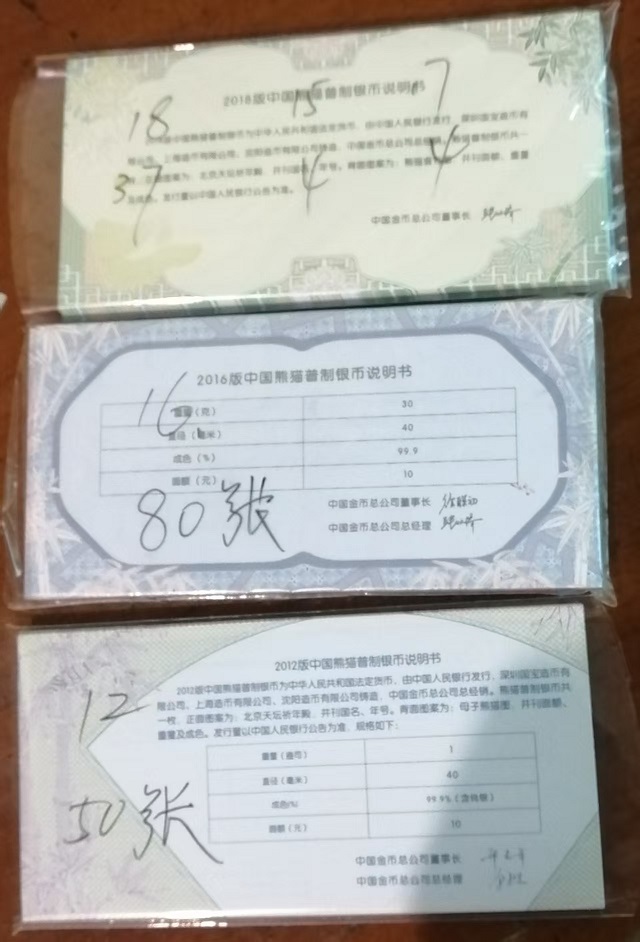 2018版中国熊猫普制银币说明书
18 15 7
2018版中国熊猫普制银币为中华人民共和国法定货币，由中国人民银行发行，深圳国宝造币有
限公司、上海造币有限公司、沈阳造币有限公司铸造，中国金币总公司总经销。熊猫普制银币共一
正面图案为：北京天坛祈年殿，并刊国名、年号。背面图案为：熊猫 并刊面额、重量
及成色。发行量以中国人民银行公告为准。
37 4 4
中国金币总公司董事长
2016版中国熊猫普制银币说明书
16
重量（克） 30
直径（毫米） 40
成色（%） 99.9
面额（元） 10
80张
中国金币总公司董事长
中国金币总公司总经理
2012版中国熊猫普制银币说明书
2012版中国熊猫普制银币为中华人民共和国法定货币，由中国人民银行发行，深圳国宝造币有
限公司、上海造币有限公司、沈阳造币有限公司铸造，中国金币总公司总经销。熊猫普制银币共
一枚，正面图案为：北京天坛祈年殿，并刊国名、年号。背面图案为：母子熊猫图，并刊面额、
重量及成色。发行量以中国人民银行公告为准，规格如下：
12
重量（盎司） 1
直径（毫米） 40
成色(%) 99.9%（含纯银）
面额（元） 10
50张
中国金币总公司董事长
中国金币总公司总经理